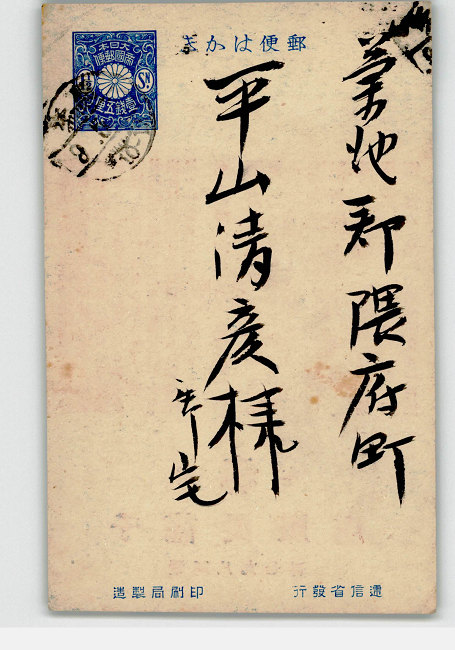 郵便はかき
大日本帝國郵便
壹錢五厘
菊池郡隈府町
平山清彦様
宅
遞信省發行
印刷局製造